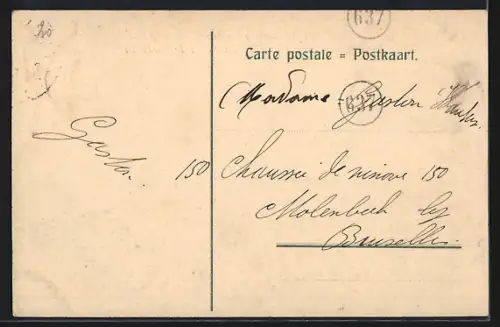 20
637
Carte postale = Postkaart.
Madame Gaston
637
Gaston.
150 Chaussée de ninove 150
Molenbeek lez
Bruxelles.